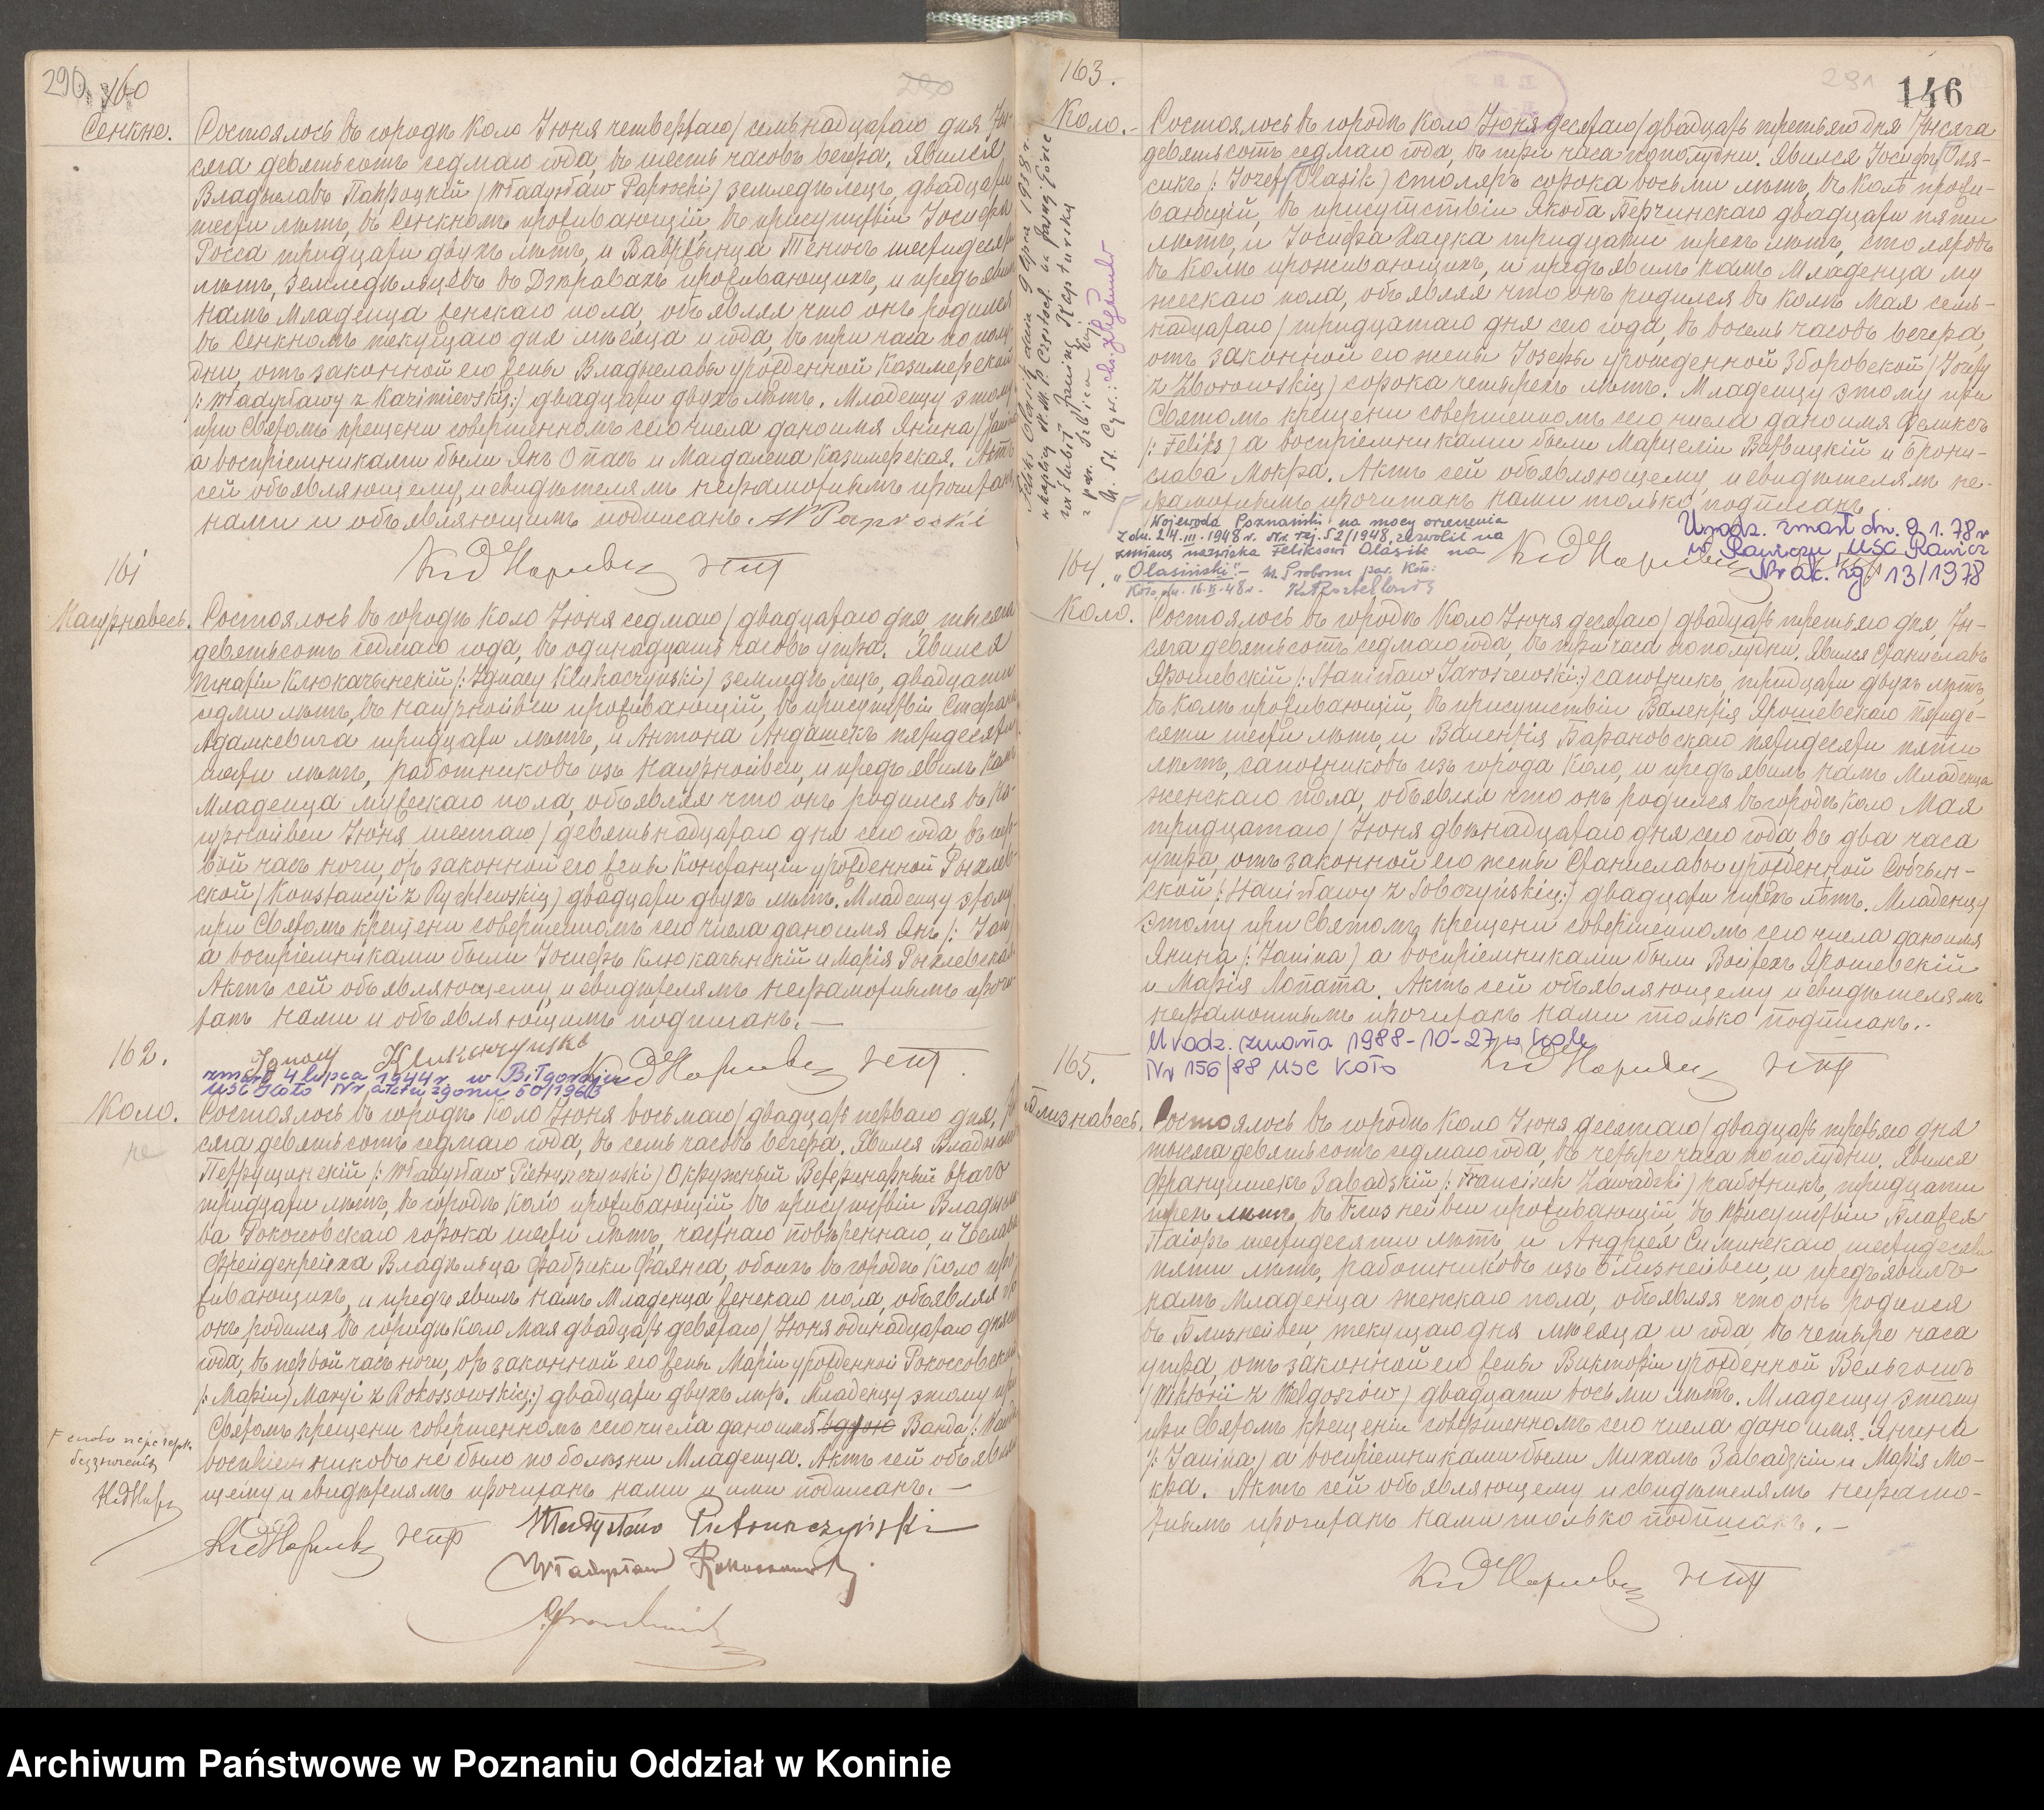 290.
160
Сенкне.
Состоялось въ городѣ Коло Іюня четвертаго/ семьнадцатаго дня Ты-
сяча девятьсотъ седмаго года, въ шесть часовъ вечера. Явился
Владыславъ Папроцкій /Władysław Paprocki/ земледѣлецъ, двадцати
шести лѣтъ, въ Сенкномъ проживающій, въ присутствіи Іосифа
Росса тридцати двухъ лѣтъ, и Вавржынца шестидесяти
лѣтъ, земледѣльцевъ въ Домбравахъ проживающихъ, и предъявилъ
намъ Младенца женскаго пола, объявляя что онъ родился
въ Сенкномъ текущаго дня мѣсяца и года, въ три часа пополу-
дни, отъ законной его жены Владыславы урожденной Казимерской
/: Władysławy z Kazimierskich:/ двадцати двухъ лѣтъ. Младенцу этому
при Святомъ крещеніи совершенномъ сего числа дано имя Янина /Janina
а воспріемниками были Янъ Опасъ и Магдалена Казимерская. Актъ
сей объявляющему, и свидѣтелямъ неграмотнымъ прочитанъ
нами и объявляющимъ подписанъ. W Paprocki
161
Нагурнавесь.
Состоялось въ городѣ Коло Іюня седмаго/ двадцатаго дня, тысяча
девятьсотъ седмаго года, въ одинадцать часовъ утра. Явился
Игнатій Клюкачынскій /: Ignacy Klukaczyński/ земледѣлецъ, двадцати
седми лѣтъ, въ Нагурнойвси проживающій, въ присутствіи Стефана
Адамкевича тридцати лѣтъ, и Антона Андашекъ пятидесяти
шести лѣтъ, работниковъ изъ Нагурнойвси, и предъявилъ намъ
Младенца мужескаго пола, объявляя что онъ родился въ На-
гурнойвси Іюня шестаго/ девятьнадцатаго дня сего года, въ пер-
вой часъ ночи, отъ законной его жены Констанціи урожденной Рыхлев-
ской/ Konstancyi z Rychlewskich/ двадцати двухъ лѣтъ. Младенцу этому
при Святомъ крещеніи совершенномъ сего числа дано имя Янъ /: Jan
а воспріемниками были Іосифъ Клюкачынскій и Марія Рыхлевская
Актъ сей объявляющему, и свидѣтелямъ неграмотнымъ прочи-
танъ нами и объявляющимъ подписанъ. —
Ignacy Klukaczyński
zmarł 4 lipca 1944 r. w Biłgoraju
USC Koło Nr aktu zgonu 50/1966
162.
Коло.
Состоялось въ городѣ Коло Іюня восьмаго/ двадцать перваго дня, Ты-
сяча девятьсотъ седмаго года, въ семь часовъ вечера. Явился Владыславъ
Петрущинскій /: Władysław Pietruszczyński/ Окружный Ветеринарный врачъ
тридцати лѣтъ, въ городѣ Коло проживающій, въ присутствіи Владысла-
ва Рокоссовскаго сорока шести лѣтъ, частнаго повѣреннаго, и Чеслава
Фрейденрейха Владѣльца Фабрики Фаянса, обоихъ въ городѣ Коло про-
живающихъ, и предъявилъ намъ Младенца женскаго пола, объявляя что
онъ родился въ городѣ Коло Мая двадцать девятаго/ Іюня одинадцатаго дня сего
года, въ первой часъ ночи, отъ законной его жены Маріи урожденной Рокоссовской
/: Маріи/ Maryi z Rokossowskich:/ двадцати двухъ лѣтъ. Младенцу этому при
Святомъ крещеніи совершенномъ сего числа дано имя Ванда /: Wanda
воспріемниковъ не было по болѣзни Младенца. Актъ сей объявляю-
щему и свидѣтелямъ прочитанъ нами и ими подписанъ. —
Władysław Pietruszczyński
Władysław Rokossowski
163.
291
146
Коло.
Feliks Olasik dnia 9 lipca 1928 r.
w kaplicy M. B. Częstoch. na Jasnej Górze
zaślubił Janinę
Состоялось въ городѣ Коло Іюня десятаго/ двадцать третьяго дня Тысяча
девятьсотъ седмаго года, въ три часа пополудни. Явился Іосифъ Оля-
сикъ /: Józef Olasik/ столяръ сорока восьми лѣтъ, въ Колѣ прожи-
вающій, въ присутствіи Якоба Берчинскаго двадцати пяти
лѣтъ, и Іосифа Кацка тридцати трехъ лѣтъ, столяровъ
въ Колѣ проживающихъ, и предъявилъ намъ Младенца му-
жескаго пола, объявляя что онъ родился въ Колѣ Мая семь-
надцатаго/ тридцатаго дня сего года, въ восемь часовъ вечера,
отъ законной его жены Іозефы урожденной Зборовской /Józefy
z Zborowskich/ сорока четырехъ лѣтъ. Младенцу этому при
Святомъ крещеніи совершенномъ сего числа дано имя Феликсъ
/: Feliks/ а воспріемниками были Марцелій Варвицкій и Брони-
слава Мокра. Актъ сей объявляющему, и свидѣтелямъ не-
грамотнымъ прочитанъ нами только подписанъ.
Wojewoda Poznański na mocy orzeczenia
z dn. 24.III.1948 r. Nr. rej. 52/1948, zezwolił na
zmianę nazwiska Feliksowi Olasik na
"Olasiński".
Urodz. zmarł dn. 9.1.78 r
w Rawiczu, USC Rawicz
Nr ak. zg. 13/1978
164.
Коло.
Состоялось въ городѣ Коло Іюня десятаго/ двадцать третьяго дня, Ты-
сяча девятьсотъ седмаго года, въ три часа пополудни. Явился Станиславъ
Ярошевскій /: Stanisław Jaroszewski:/ сапожникъ, тридцати двухъ лѣтъ,
въ Колѣ проживающій, въ присутствіи Валентія Ярошевскаго пятиде-
сяти шести лѣтъ, и Валентія Барановскаго пятидесяти пяти
лѣтъ, сапожниковъ изъ города Коло, и предъявилъ намъ Младенца
женскаго пола, объявляя что онъ родился въ городѣ Коло Мая
тридцатаго/ Іюня двѣнадцатаго дня сего года, въ два часа
утра, отъ законной его жены Станиславы урожденной Собчын-
ской /: Stanisławy z Sobczyńskich:/ двадцати трехъ лѣтъ. Младенцу
этому при Святомъ крещеніи совершенномъ сего числа дано имя
Янина /: Janina/ а воспріемниками были Войтехъ Ярошевскій
и Марія Лопата. Актъ сей объявляющему и свидѣтелямъ
неграмотнымъ прочитанъ нами только подписанъ.
Urodz. zmarła 1988-10-27 w Kole
Nr 156/88 USC Koło
165.
Близнавесь.
Состоялось въ городѣ Коло Іюня десятаго/ двадцать третьяго дня
тысяча девятьсотъ седмаго года, въ четыре часа пополудни. Явился
Францишекъ Завадзкій /: Franciszek Zawadzki/ работникъ, тридцати
трехъ лѣтъ, въ Близнейвси проживающій, въ присутствіи
шестидесяти лѣтъ, и Андрея Симинскаго, шестидесяти
пяти лѣтъ, работниковъ изъ Близнейвси, и предъявилъ
намъ Младенца женскаго пола, объявляя что онъ родился
въ Близнейвси, текущаго дня мѣсяца и года, въ четыре часа
утра, отъ законной его жены Викторіи урожденной Вельгошъ
/Wiktorii z Welgoszów/ двадцати восьми лѣтъ. Младенцу этому
при Святомъ крещеніи совершенномъ сего числа дано имя Янина
/: Janina/ а воспріемниками были Михалъ Завадзкій и Марія Мо-
кра. Актъ сей объявляющему и свидѣтелямъ неграмо-
тнымъ прочитанъ нами только подписанъ. —
Archiwum Państwowe w Poznaniu Oddział w Koninie